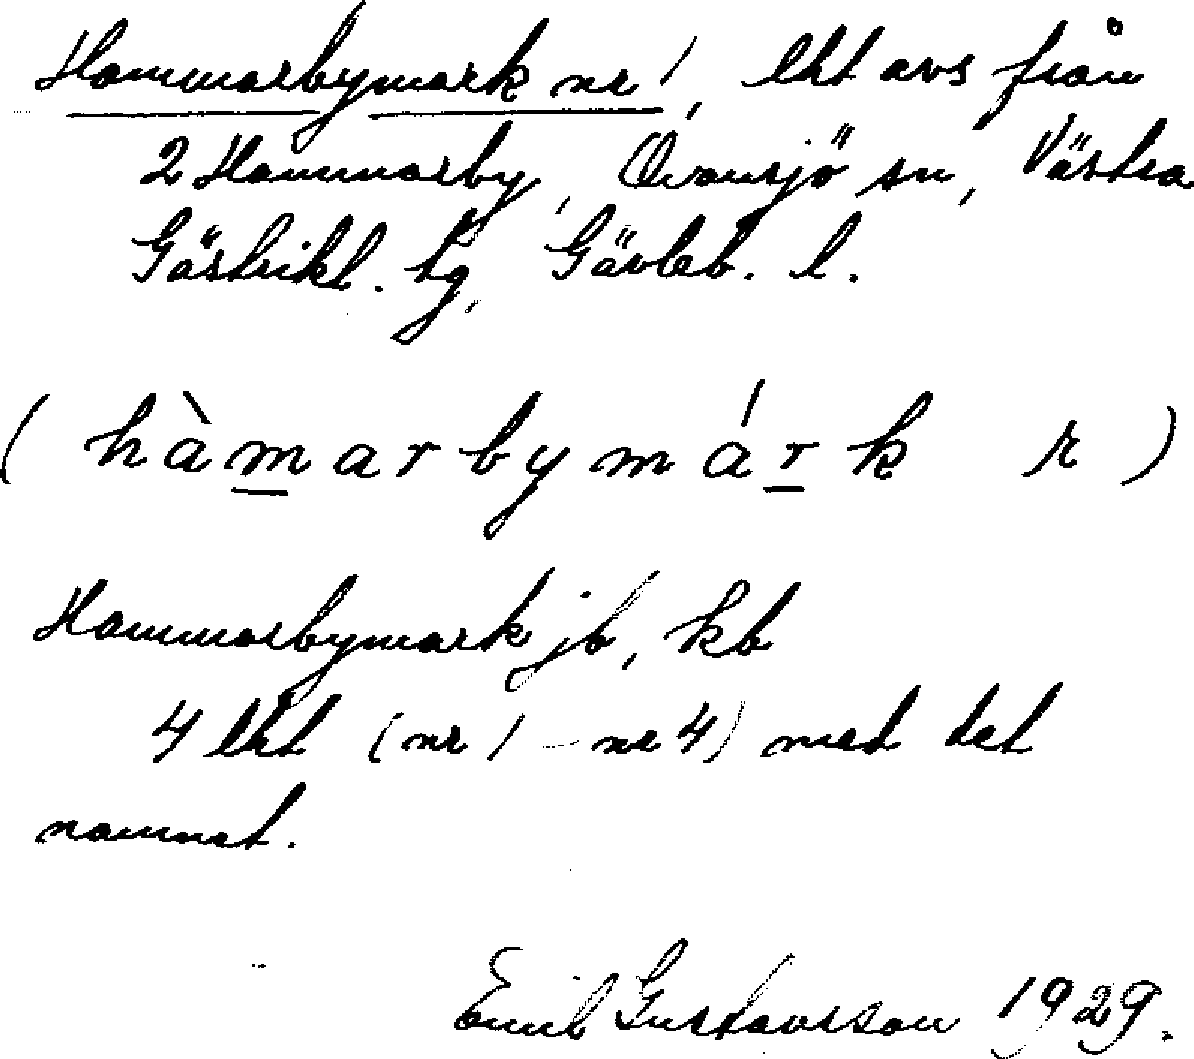 Hammarbymark nr 1, lht avs från
2 Hammarby, Ovansjö sn, Västra
Gästrikl. tg, Gävleb. l.
( hàmarbymárk r )
Hammarbymark jb, kb
4 lht (nr 1 – nr 4) med det
namnet.
Emil Gustavsson 1929.